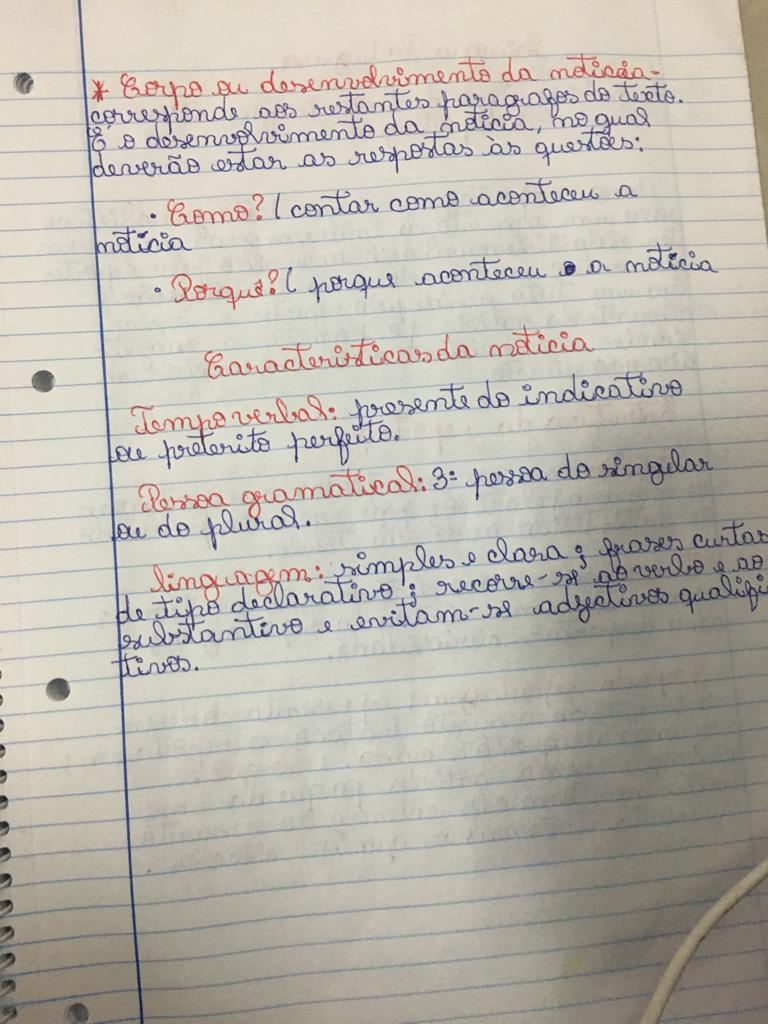 * Corpo ou desenvolvimento da notícia-
corresponde aos restantes paragrafos do texto.
É o desenvolvimento da notícia, no qual
deverão estar as respostas às questões:
• Como? ( contar como aconteceu a
notícia
• Porquê? ( porque aconteceu a notícia
Caracteristicas da noticia
Tempo verbal: presente do indicativo
ou preterito perfeito.
Pessoa gramatical: 3ª pessoa do singular
ou do plural.
linguagem: simples e clara; frases curtas
de tipo declarativo; recorre-se ao verbo e ao
substantivo e evitam-se adjectivos qualifi
tivos.